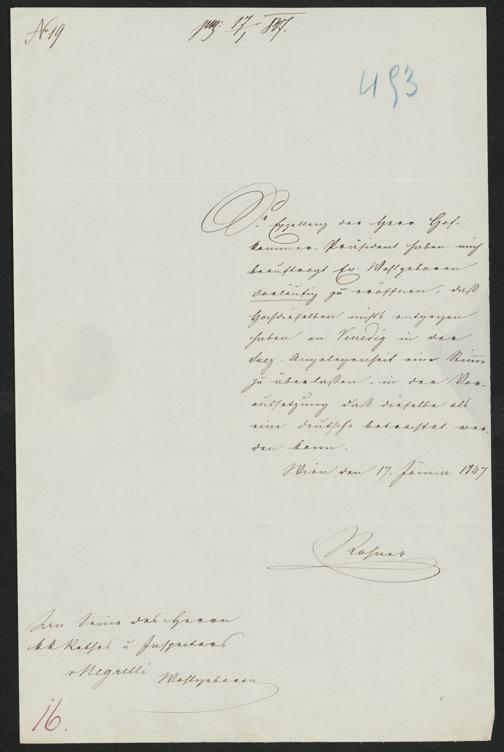 No 19
prs: 17/1 847.
493
Se Exzellenz der Herr Hof-
kammer-Präsident haben mich
beauftragt Ew. Wohlgeboren
vorläufig zu eröffnen, daß
Hochdieselben nichts entgegen
haben an Venedig in der
Suez-Angelegenheit eine Stimme
zu überlassen - in der Vor-
aussetzung daß dieselbe als
eine deutsche betrachtet wer-
den kann.
Wien den 17. Jänner 1847
Rosner
des Herrn
kk Rathes u Inspectors
Negrelli Wohlgeboren
16.